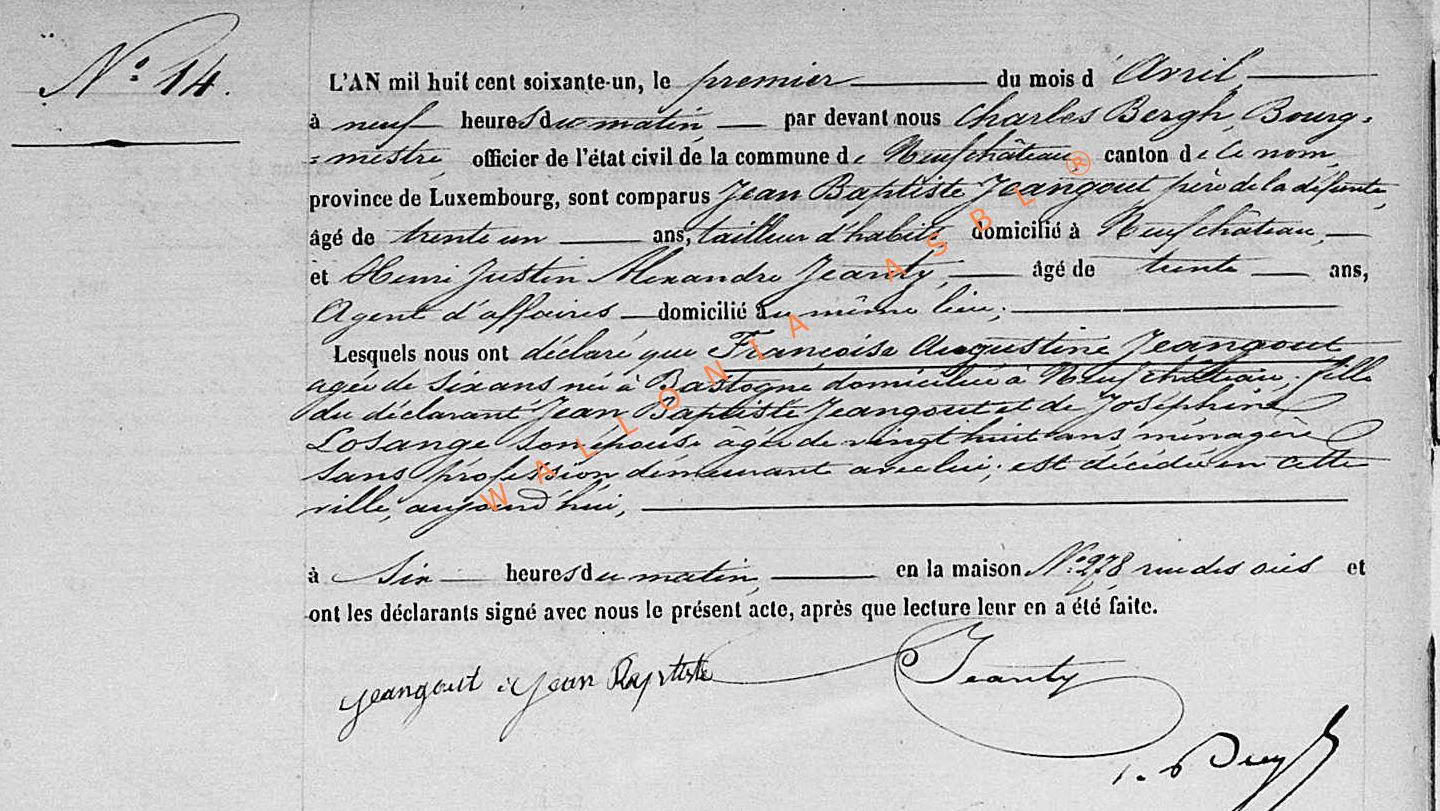 N° 14.
L'AN mil huit cent soixante-un, le premier du mois d' Avril
à neuf heures du matin, par devant nous Charles Bergh, Bourg=
=mestre, officier de l'état civil de la commune de Neufchâteau, canton de ce nom,
province de Luxembourg, sont comparus Jean Baptiste Jeangout père de la défunte,
âgé de trente un ans, tailleur d'habits domicilié à Neufchâteau,
et Henri Justin Alexandre Jeanty, âgé de trente ans,
Agent d'affaires domicilié au même lieu;
Lesquels nous ont déclaré que Françoise Augustine Jeangout
agée de six ans né à Bastogne domiciliée à Neufchâteau, fille
du déclarant Jean Baptiste Jeangout et de Joséphine
Losange son épouse âgée de vingt huit ans ménagère
sans profession demeurant avec lui; est décédée en cette
ville, aujourd'hui,
à six heures du matin, en la maison N° 278, rue des et
ont les déclarants signé avec nous le présent acte, après que lecture leur en a été faite.
jeangout jean Baptiste Jeanty
WALLONIA ASBL ®